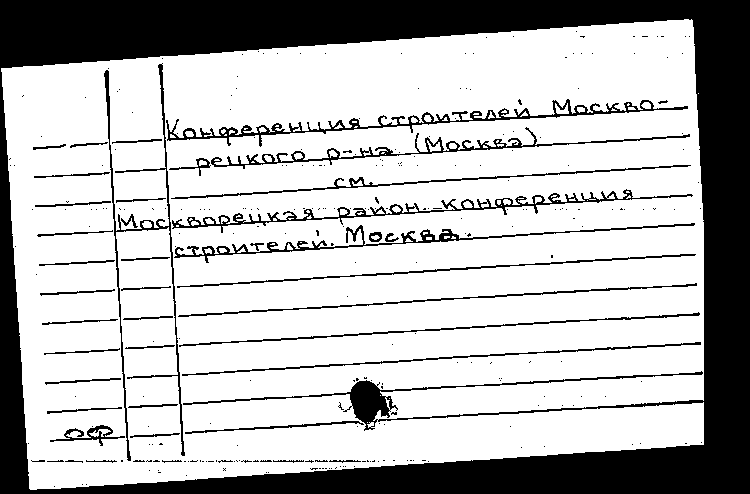 Конференция строителей Москво-
рецкого р-на (Москва)
см.
Москворецкая район. конференция
строителей. Москва.
оф